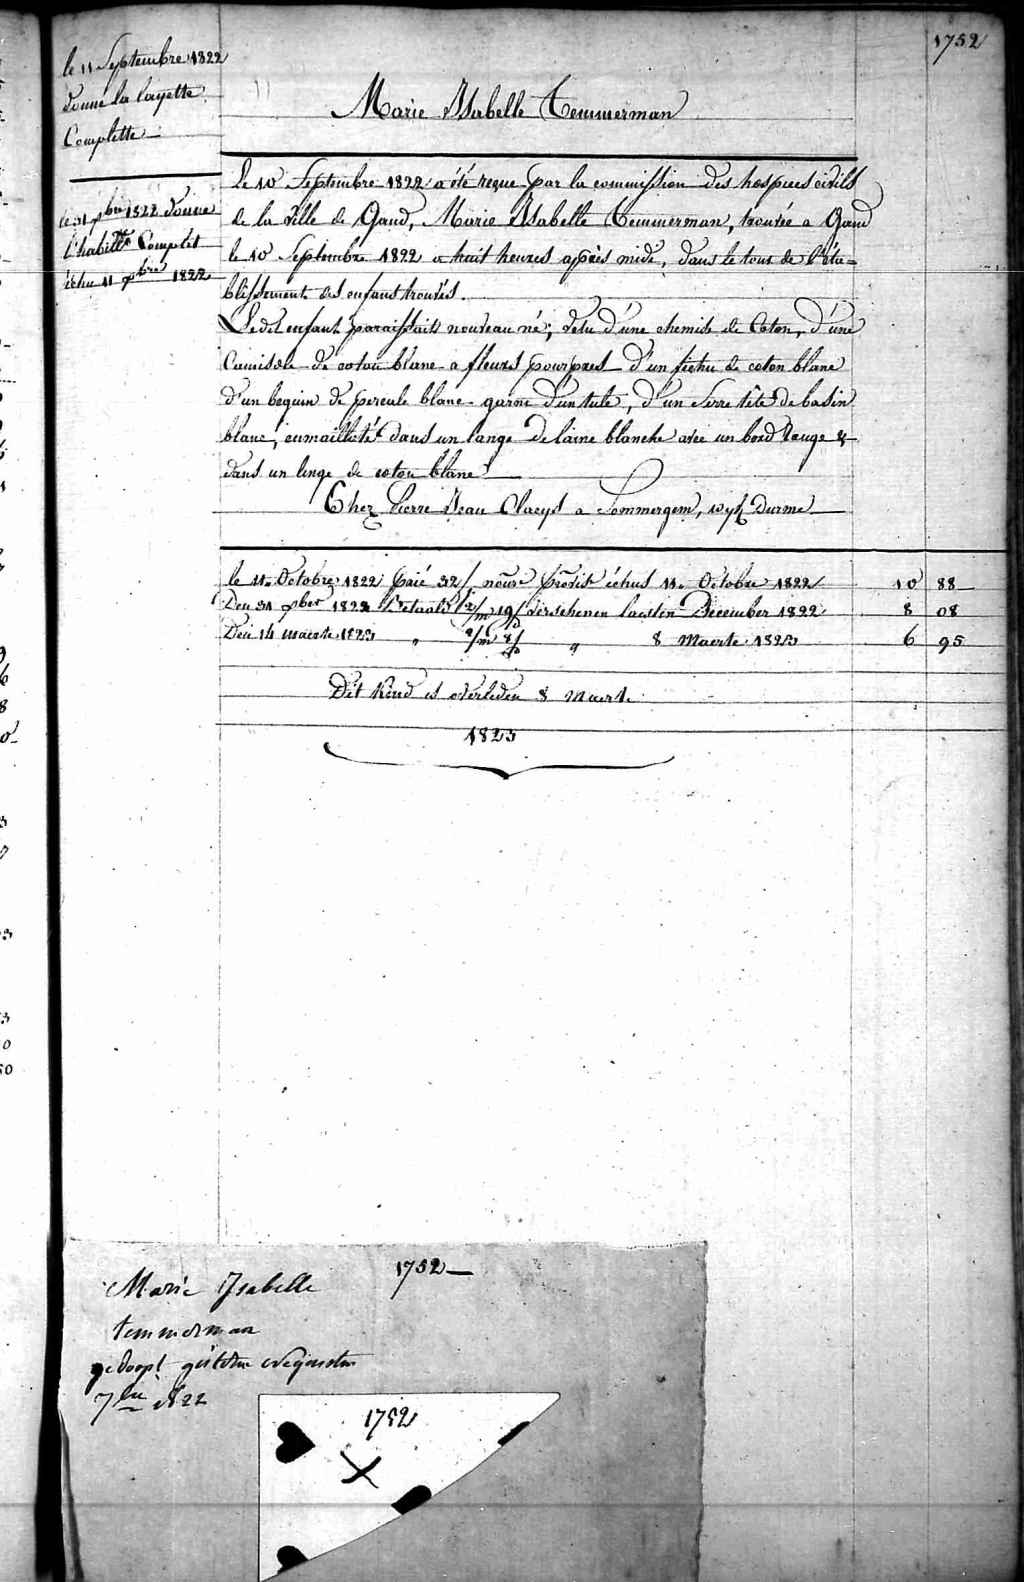 1752
le 11 Septembre 1822
donné la layette
Complette
Marie Isabelle Temmerman
Le 10 Septembre 1822 a été reçue par la commission des hospices civils
de la ville de Gand, Marie Isabelle Temmerman, trouvée a Gand
le 10 Septembre 1822 a huit heures après midi, dans le tour de l'éta=
blissement des enfants trouvés.
Ledit enfant paraissait nouveau né; vetu d'une chemise de Coton, d'une
Camisole de coton blanc a fleurs pourpres d'un fichu de coton blanc
d'un beguin de percale blanc garni d'un tule, d'un serre tête de basin
blanc, emmailloté dans un lange de laine blanche avec un bord rouge &
dans un linge de coton blanc
Chez Pierre Jean Claeys a Sommergem, wyk Durme
le 31 xbre 1822 donné
l'habillt Complet
échu 11 xbre 1822
le 11. Octobre 1822 Paié 32/ nourre Provis échus 11. Octobre 1822 10 88
Den 31 xber 1822 Betaald 2/m 19/d verschenen laesten December 1822 8 08
Den 14 maerte 1823 " 2/m 8/d " 8 Maerte 1823 6 95
Dit Kind is overleden 8 maert.
1823
Marie Isabelle 1752
temmerman
gedoopt
7bre 1822
1752
X